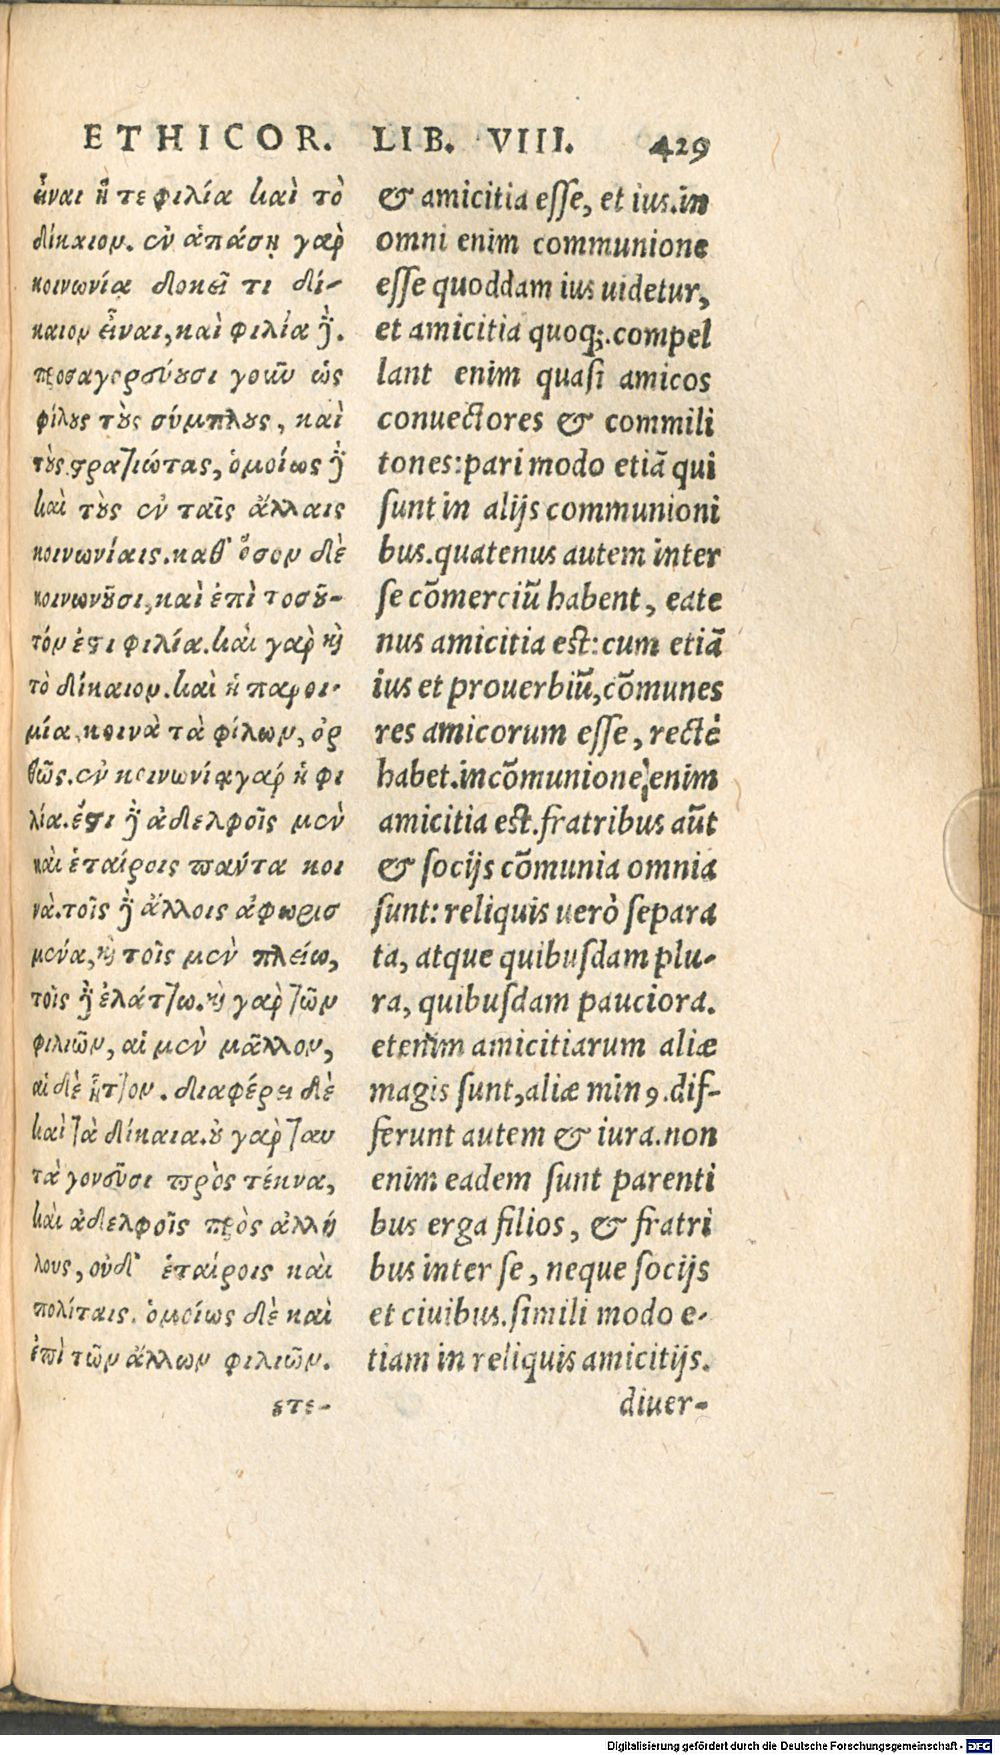 ETHICOR. LIB. VIII. 429
εἶναι ἥ τε φιλία καὶ τὸ
δίκαιον. ἐν ἁπάσῃ γαρ
κοινωνίᾳ δοκεῖ τι δί-
καιον εἶναι, καὶ φιλία δὲ.
προσαγορεύουσι γοῦν ὡς
φίλους τοὺς σύμπλους, καὶ
τοὺς στρατιώτας, ὁμοίως δὲ
καὶ τοὺς ἐν ταῖς ἄλλαις
κοινωνίαις. καθ' ὅσον δὲ
κοινωνοῦσι, καὶ ἐπὶ τοσοῦ-
τόν ἐστι φιλία. καὶ γαρ καὶ
τὸ δίκαιον. καὶ ἡ παροι-
μία, κοινὰ τὰ φίλων, ὀρ
θῶς. ἐν κοινωνίᾳ γαρ ἡ φι
λία. ἔστι δὲ ἀδελφοῖς μὲν
καὶ ἑταίροις πάντα κοι
νὰ. τοῖς δὲ ἄλλοις ἀφωρισ
μένα, καὶ τοῖς μὲν πλείω,
τοῖς δὲ ἐλάττω. καὶ γαρ τῶν
φιλιῶν, αἱ μὲν μᾶλλον,
αἱ δὲ ἧττον. διαφέρει δὲ
καὶ τὰ δίκαια. οὐ γαρ ταυ
τὰ γονεῦσι πρὸς τέκνα,
καὶ ἀδελφοῖς πρὸς ἀλλή
λους, οὐδ' ἑταίροις καὶ
πολίταις. ὁμοίως δὲ καὶ
ἐπὶ τῶν ἄλλων φιλιῶν.
ετε-
& amicitia esse, et ius. in
omni enim communione
esse quoddam ius uidetur,
et amicitia quoq;. compel
lant enim quasi amicos
conuectores & commili
tones: pari modo etiã qui
sunt in alijs communioni
bus. quatenus autem inter
se cõmerciũ habent, eate
nus amicitia est: cum etiã
ius et prouerbiũ, cõmunes
res amicorum esse, rectè
habet. in cõmunione enim
amicitia est. fratribus aũt
& socijs cõmunia omnia
sunt: reliquis uerò separa
ta, atque quibusdam plu-
ra, quibusdam pauciora.
etenim amicitiarum aliæ
magis sunt, aliæ minꝰ. dif-
ferunt autem & iura. non
enim eadem sunt parenti
bus erga filios, & fratri
bus inter se, neque socijs
et ciuibus. simili modo e-
tiam in reliquis amicitijs.
diuer-
Digitalisierung gefördert durch die Deutsche Forschungsgemeinschaft - DFG